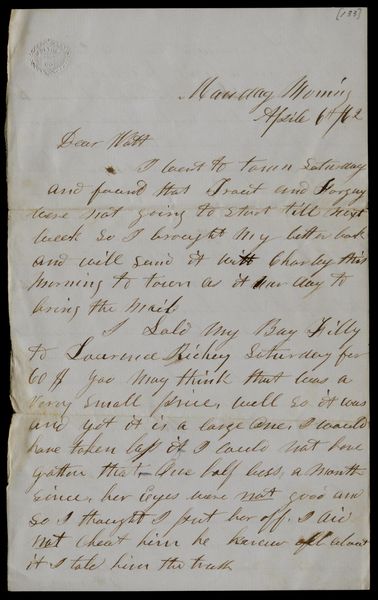 [133]
Monday Morning
Aprile 6th/62
Dear Watt
I went to town Saturday
and found that and
were not going to start till next
week so I brought my letter back
and will send it with Charley this
Morning to town as it our day to
bring the Mail
I Sold My Bay Filly
to Lawrence Richey Saturday for
60 $ you May think that was a
verry small price, well so it was
and yet it is a large one, I would
have taken less if I could not have
gotten that one half less, a month
since, her eyes were not good and
so I thought I put her off. I did
not cheat him he knew all about
it I told him the truth